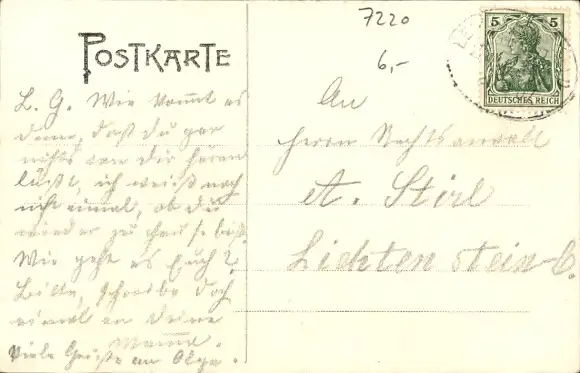 7220
6,-
POSTKARTE
5 5
DEUTSCHES REICH
L. G. Wie kommt es
denn, daß du gar
nichts von dir hören
läßt, ich weiß noch
nicht einmal, ob du
wieder zu Hause bist.
Wie geht es Euch?
Bitte, schreibe doch
einmal an deine
Mama.
Viele Grüße an Olga.
An
Herrn Rechtsanwalt
A. Stirl
Lichtenstein-C.